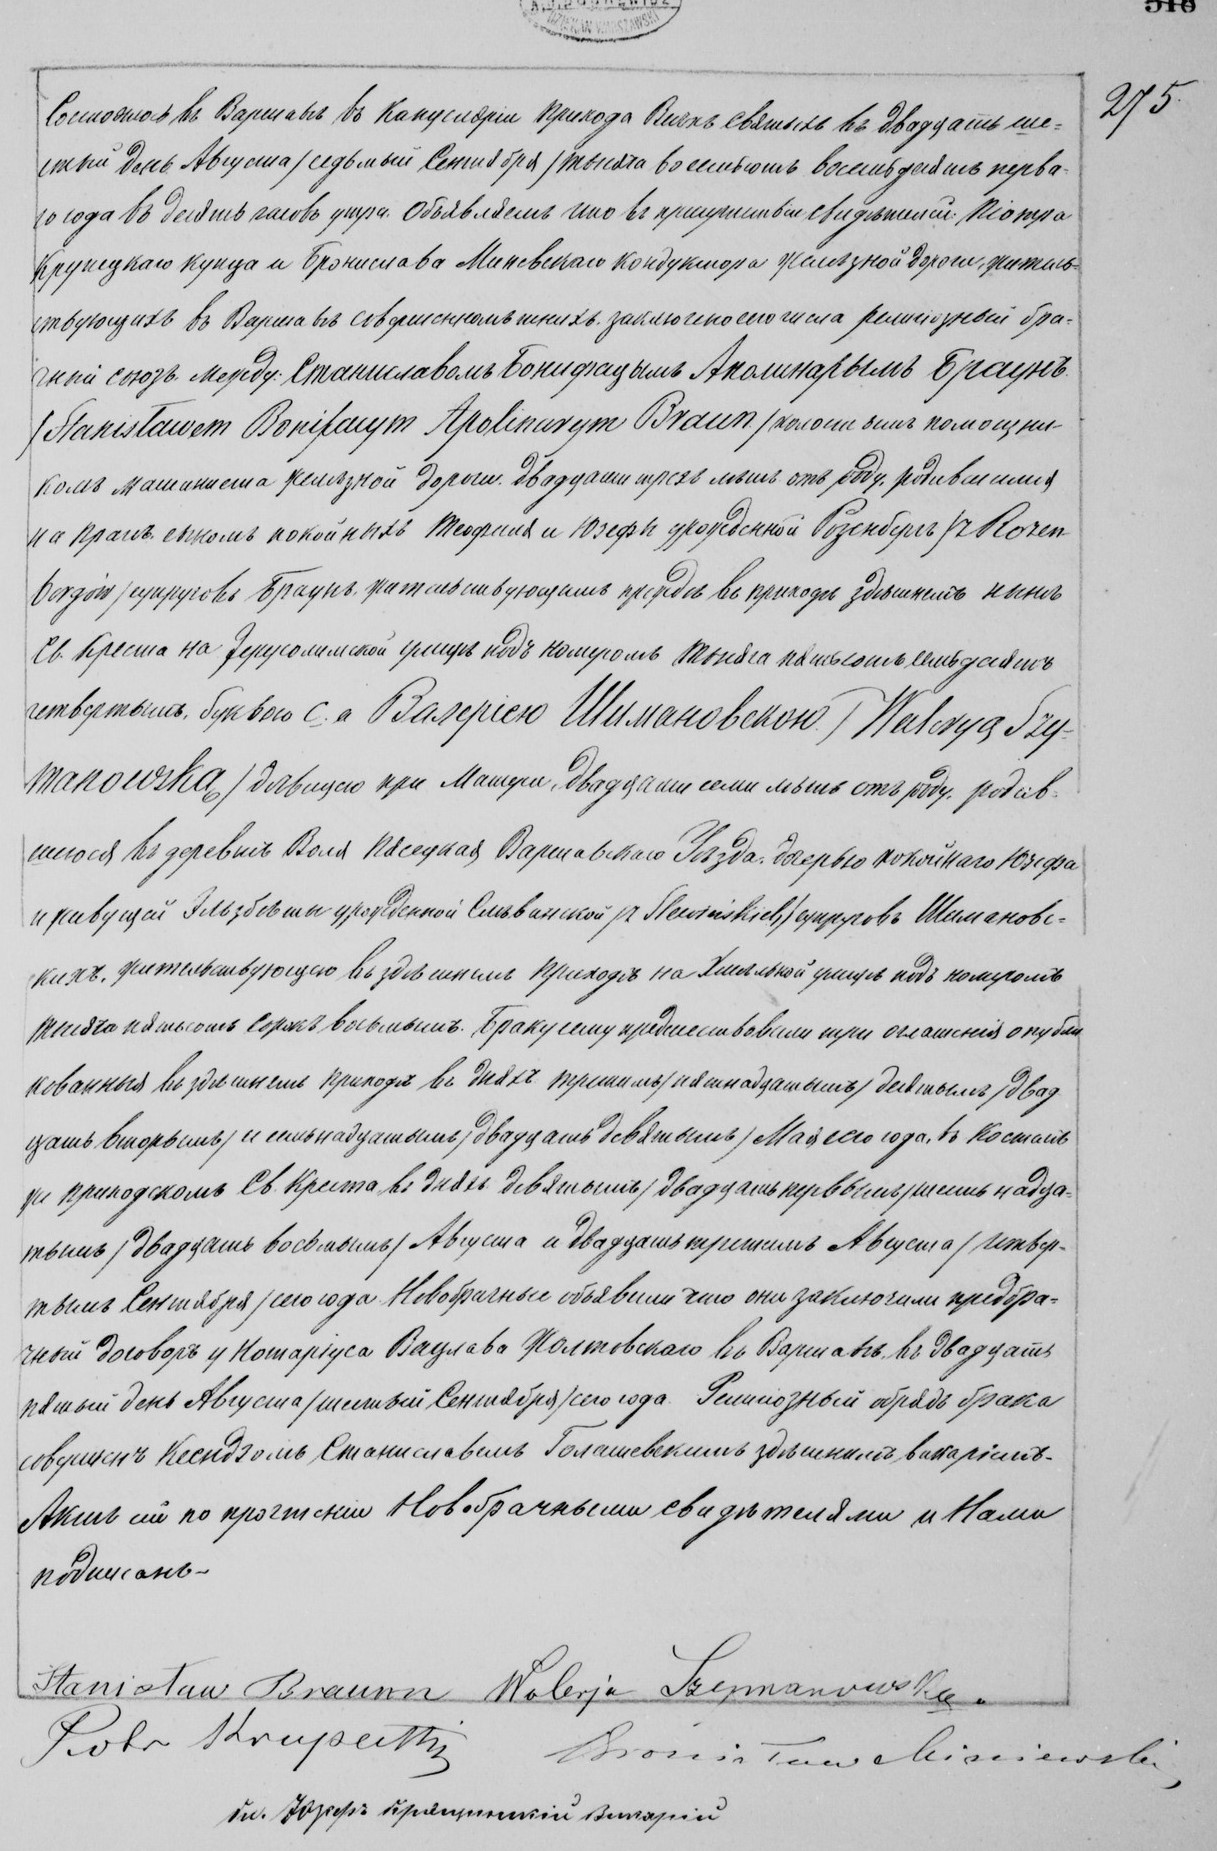 WARSZAWSKI
516
275.
Состоялось въ Варшавѣ въ Канцеляріи прихода Всѣхъ Святыхъ въ двадцать ше=
стый день Августа /седьмый Сентября/ тысяча восемьсотъ восемьдесятъ перва-
го года въ десять часовъ утра. Объявляемъ что въ присутствіи свидѣтелей: Піотра
Крупецкаго купца и Бронислава Мисевскаго кондуктора желѣзной дороги, житель=
ствующихъ въ Варшавѣ совершеннолѣтнихъ, заключено сего числа религіозный бра=
чный союзъ между: Станиславомъ Бонифацымъ Аполинарымъ Браунъ
/Stanisławem Bonifacym Apolinarym Braun/ холостымъ помощни-
комъ машиниста желѣзной дороги, двадцати трехъ лѣтъ отъ роду, родившимся
на Прагѣ, сыномъ покойныхъ Теофиля и Юзефы урожденной Розенбергъ /z Rozen
bergów/ супруговъ Браунъ, жительствующимъ прежде въ приходѣ здѣшнемъ нынѣ
Св. Креста на Іерусолимской улицѣ подъ номеромъ тысяча пятьсотъ семьдесятъ
четвертымъ, буквою C. а Валеріею Шимановскою /Waleryą Szy-
manowską/ дѣвицею при матери, двадцати семи лѣтъ отъ роду, родив-
шеюся въ деревнѣ Воля Пясецкая Варшавскаго Уѣзда, дочерью покойнаго Юзефа
и живущей Эльзбѣты урожденной Слѣвинской /z Slewińskich/ супруговъ Шимановс=
кихъ, жительствующею въ здѣшнемъ приходѣ на Хмѣльной улицѣ подъ номеромъ
тысяча пятьсотъ сорокъ восьмымъ. Браку сему предшествовали три оглашенія опубли
кованныя въ здѣшнемъ приходѣ въ дняхъ третьимъ /пятнадцатымъ/ десятымъ /двад
цать вторымъ/ и семьнадцатымъ /двадцать девятымъ/ Мая сего года, въ Костелѣ
же приходскомъ Св. Креста въ дняхъ девятымъ /двадцать первымъ/ шестьнадца-
тымъ /двадцать восьмымъ/ Августа и двадцать третьимъ Августа /четвер-
тымъ Сентября/ сего года. Новобрачные объявили что они заключили предбра=
чный договоръ у Нотаріуса Вацлава Холтовскаго въ Варшавѣ, въ двадцать
пятый день Августа /шестый Сентября/ сего года. Религіозный обрядъ брака
совершенъ Ксендзомъ Станиславомъ Голашевскимъ здѣшнимъ викаріемъ.
Актъ сей по прочтеніи Новобрачными свидѣтелями и Нами
подписанъ-
Stanisław Braunn Walerja Szymanowska.
Piotr Krupecki Bronisław Misiewski
Кс. Юзефъ Викарій